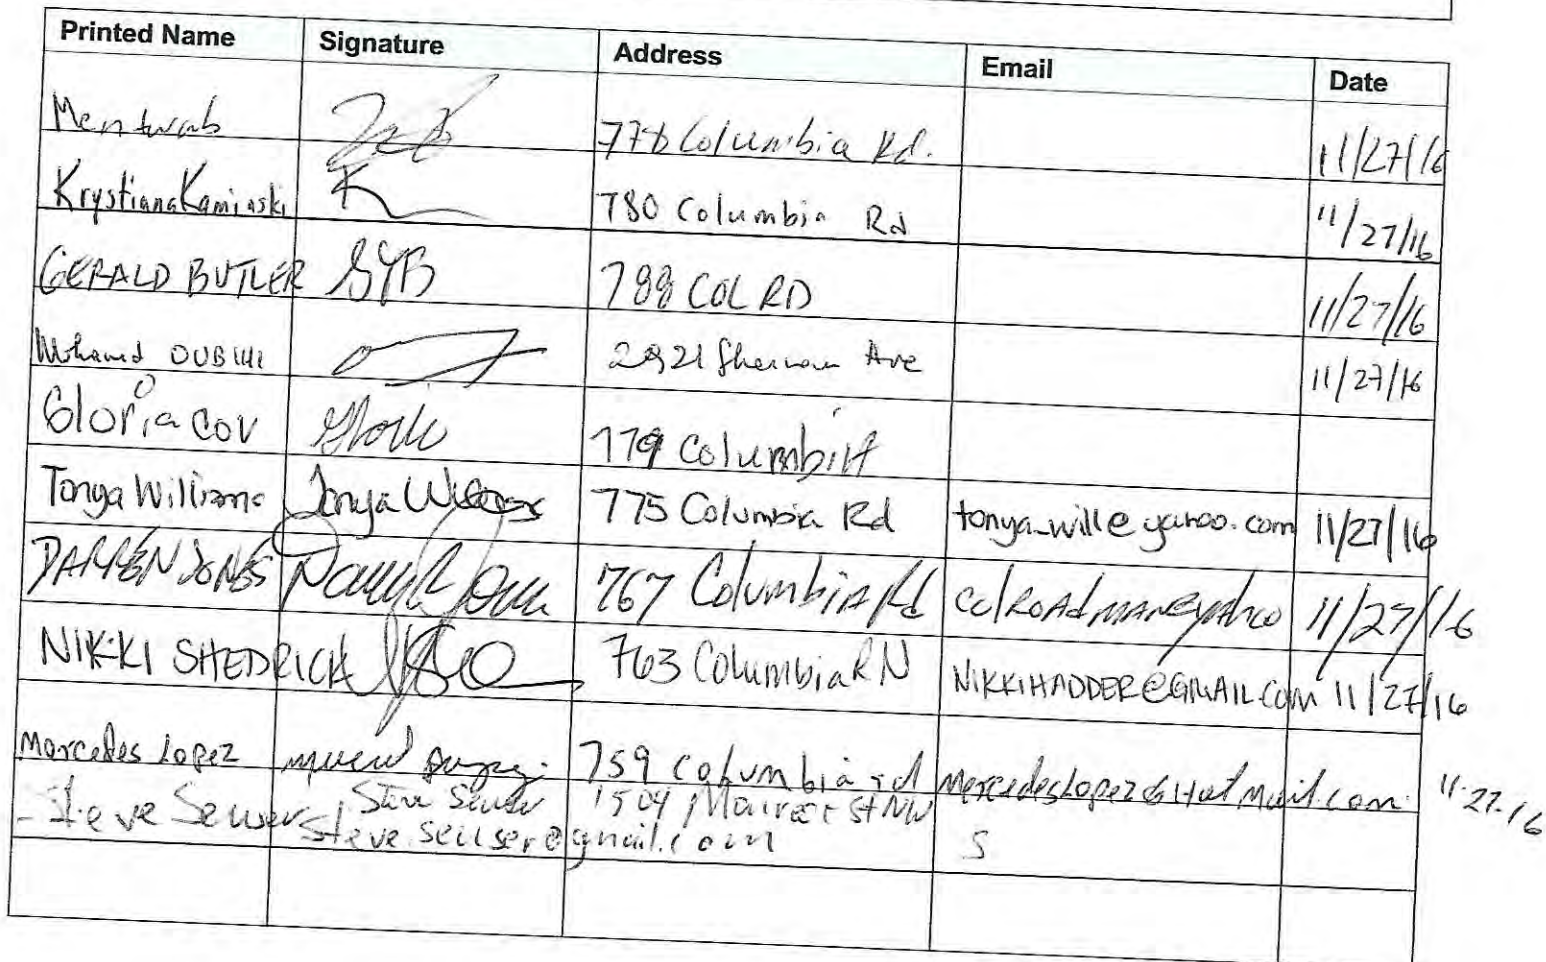 Printed Name Signature Address Email Date
Mentwab 778 Columbia Rd. 11/27/16
Krystiana Kaminski K 780 Columbia Rd 11/27/16
GERALD BUTLER GYB 788 COL RD 11/27/16
Mohamed 2921 Sherman Ave 11/27/16
Gloria COV 779 Columbia
Tonya Williams Tonya Williams 775 Columbia Rd tonya_will@yahoo.com 11/27/16
DARREN JONES 767 Columbia Rd colRoAdmAn@yAhoo 11/27/16
NIKKI SHEDRICK 763 Columbia RN NIKKIHADDER@GMAIL.COM 11/27/16
Mercedes Lopez 759 columbia rd MercedesLopez@Hotmail.com 11-27-16
Steve 1504 St NW
steve.seuser@gmail.com S